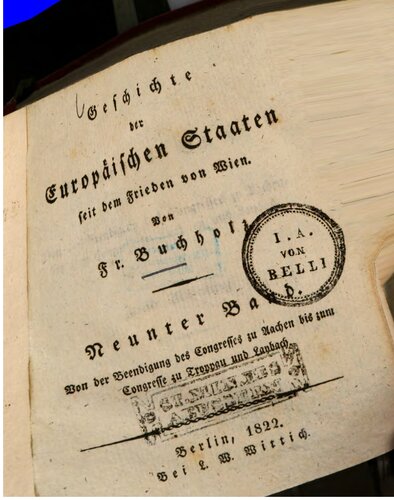 Geschichte
der
Europäischen Staaten
seit dem Frieden von Wien.
Von
Fr. Buchholz
I. A.
VON
BELLI
Neunter Band.
Von der Beendigung des Congresses zu Aachen bis zum
Congresse zu Troppau und Laybach
Berlin, 1822.
Bei L. W. Wittich.